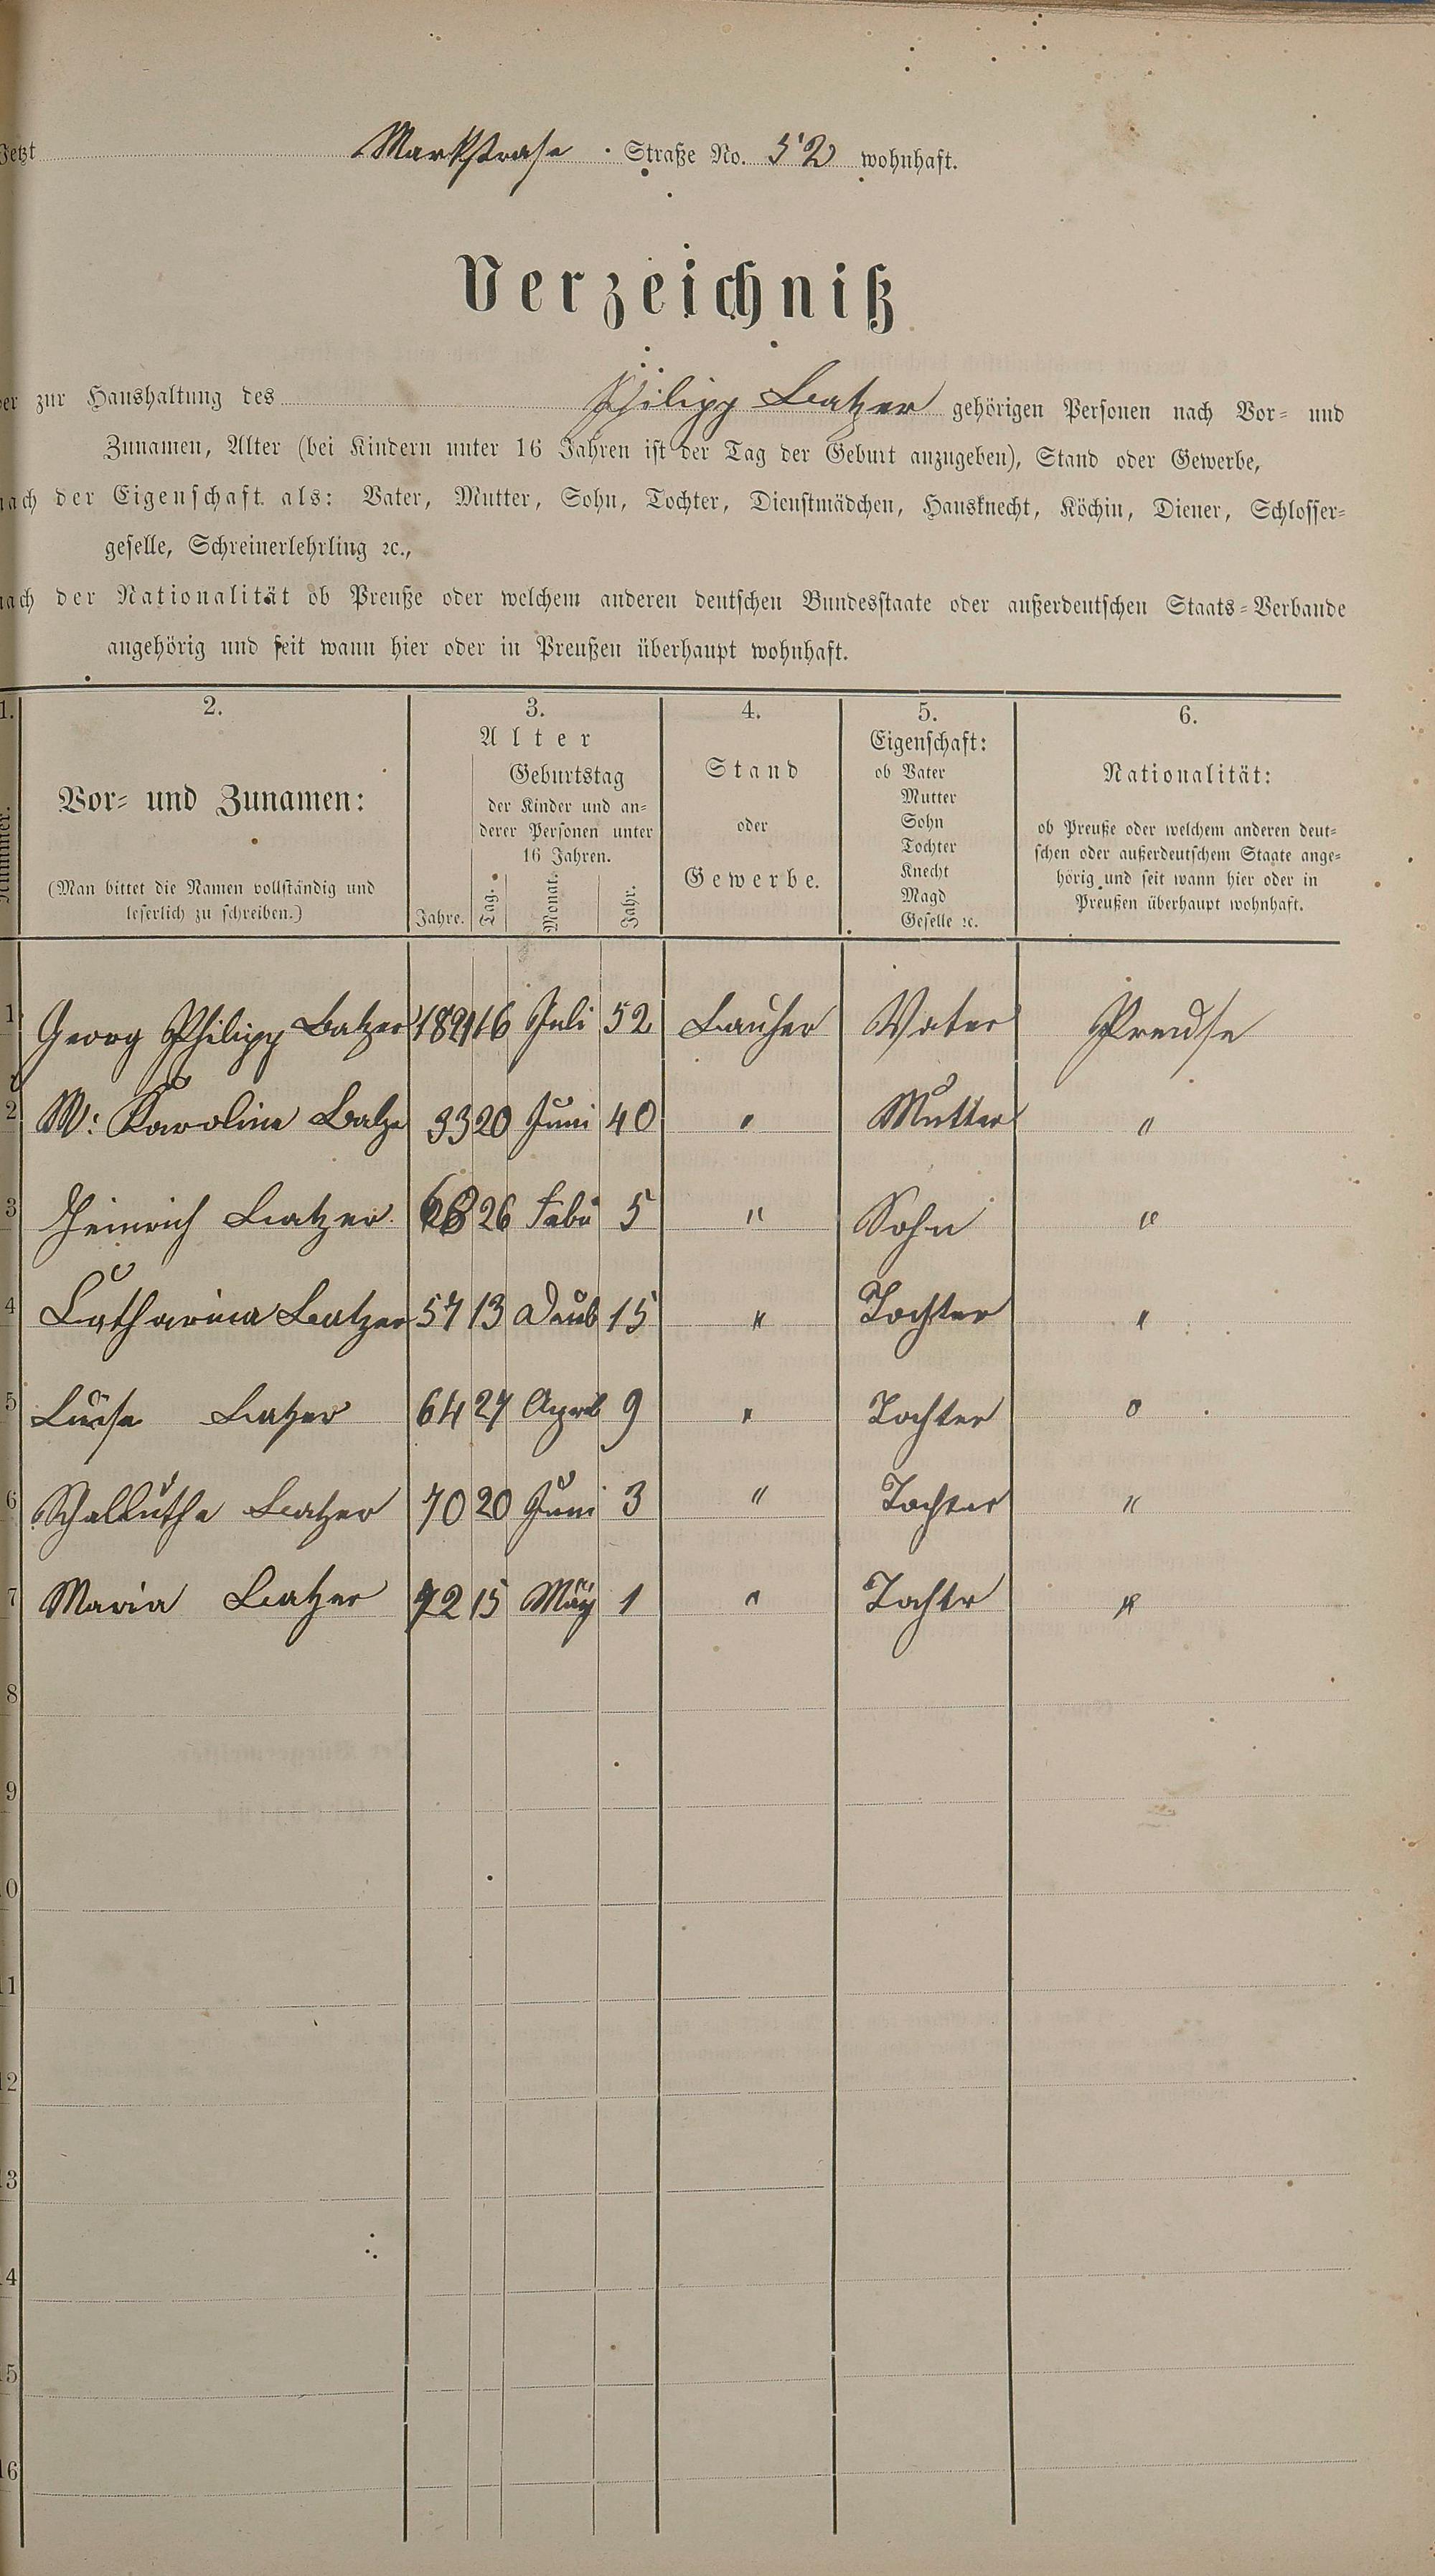 Jetzt Markstrase Straße No. 52 wohnhaft.
Verzeichniß
der zur Haushaltung des Philipp Batzer gehörigen Personen nach Vor- und
Zunamen, Alter (bei Kindern unter 16 Jahren ist der Tag der Geburt anzugeben), Stand oder Gewerbe,
nach der Eigenschaft als: Vater, Mutter, Sohn, Tochter, Dienstmädchen, Hausknecht, Köchin, Diener, Schlosser-
geselle, Schreinerlehrling ꝛc.,
nach der Nationalität ob Preuße oder welchem anderen deutschen Bundesstaate oder außerdeutschen Staats-Verbande
angehörig und seit wann hier oder in Preußen überhaupt wohnhaft.
1.
Nummer.
2.
Vor- und Zunamen:
(Man bittet die Namen vollständig und
leserlich zu schreiben.)
3.
Alter
Geburtstag
der Kinder und an-
derer Personen unter
16 Jahren.
Jahre. Tag. Monat. Jahr.
4.
Stand
oder
Gewerbe.
5.
Eigenschaft:
ob Vater
Mutter
Sohn
Tochter
Knecht
Magd
Geselle ꝛc.
6.
Nationalität:
ob Preuße oder welchem anderen deut-
schen oder außerdeutschem Staate ange-
hörig und seit wann hier oder in
Preußen überhaupt wohnhaft.
1 Georg Philipp Batzer 1821 16 Juli 52 Vater Preuse
2 W: Karoline Batze 33 20 Juni 40 " Mutter "
3 Heinrich Batzer 68 26 Febu 5 " Sohn "
4 Catharina Batzer 57 13 15 " Tochter "
5 Luise Batzer 64 27 April 9 " Tochter "
6 Batzer 70 20 Juni 3 " Tochter "
7 Maria Batzer 72 15 May 1 " Tochtr "
8
9
10
11
12
13
14
15
16